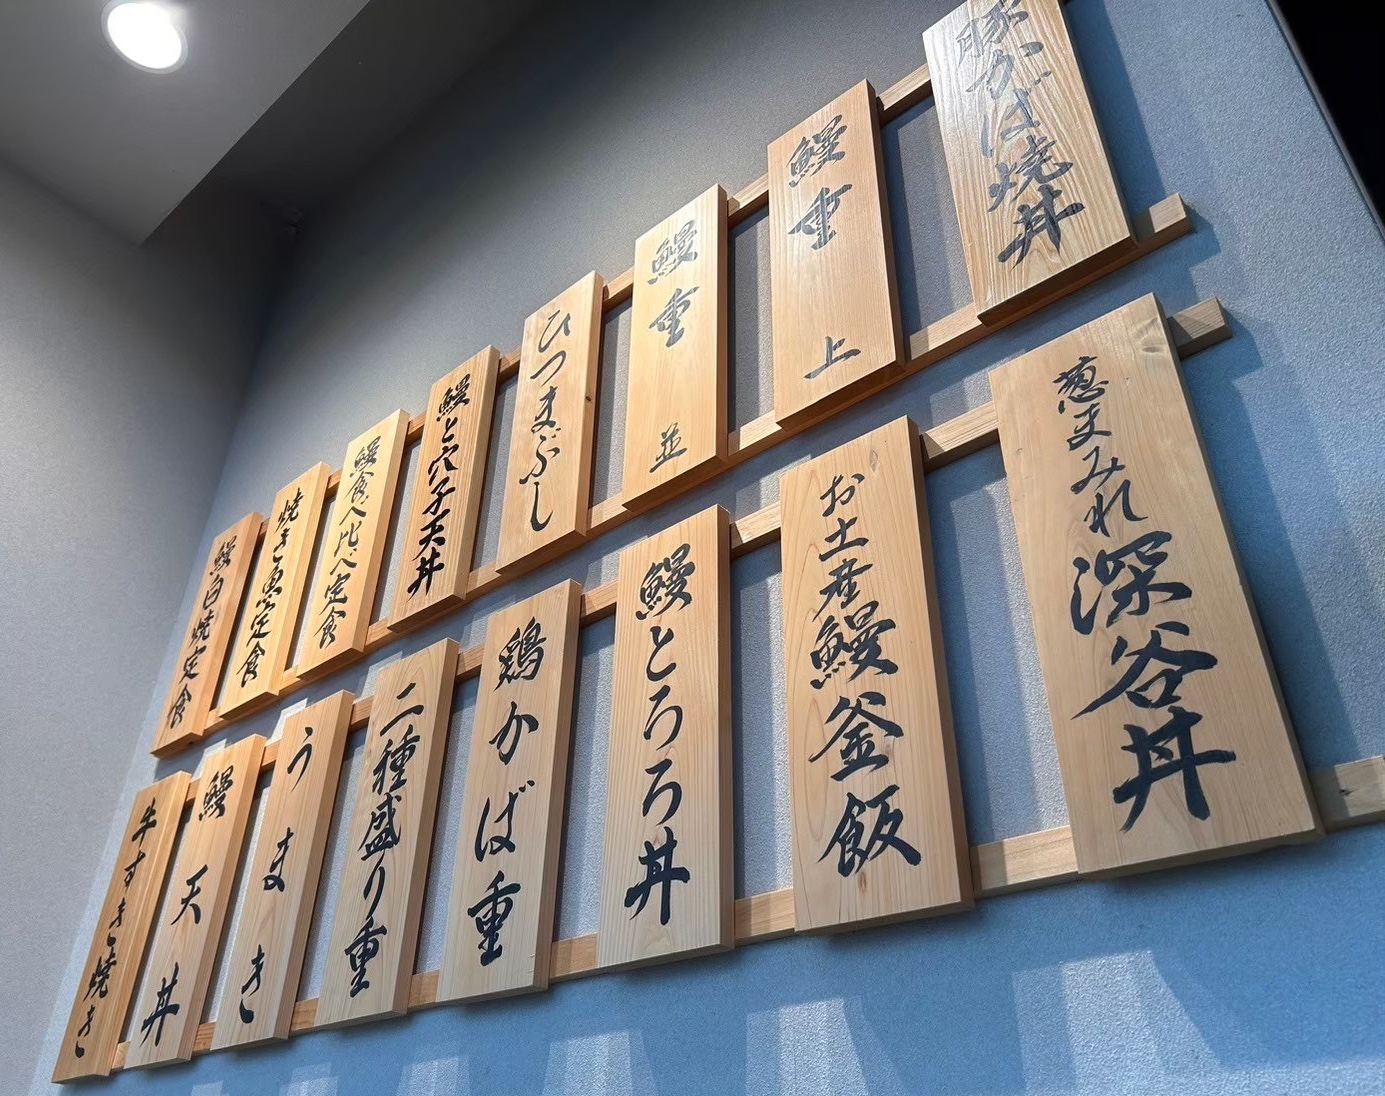 豚かば焼丼
鰻重 上
鰻重 並
ひつまぶし
鰻と穴子天丼
鰻食べ比べ定食
焼き魚定食
鰻白焼定食
葱まみれ深谷丼
お土産鰻釜飯
鰻とろろ丼
鶏かば重
二種盛り重
うまき
鰻天丼
牛すき焼き